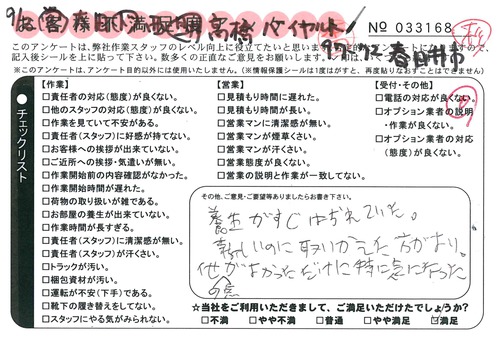 No 033168
このアンケートは、弊社作業スタッフのレベル向上に役立てたいと思います
記入後シールを上に貼って下さい。数多くの正直なご意見をお願い
※このアンケートは、アンケート目的以外には使用いたしません。(※情報保護シールは1度がすと、再度貼りなおすことはできません)
チェックリスト
【作業】
□責任者の対応(態度)が良くない。
□他のスタッフの対応(態度)が良くない。
□作業を見ていて不安がある。
□責任者(スタッフ)に好感が持てない。
□お客様への挨拶が出来ていない。
□ご近所への挨拶・気遣いが無い。
□作業開始前の内容確認がなかった。
□作業開始時間が遅れた。
□荷物の取り扱いが雑である。
□お部屋の養生が出来ていない。
□作業時間が長すぎる。
□責任者(スタッフ)に清潔感が無い。
□責任者(スタッフ)が汗くさい。
□トラックが汚い。
□梱包資材が汚い。
□運転が不安(下手)である。
□靴下の履き替えをしてない。
□スタッフにやる気がみられない。
【営業】
□見積もり時間に遅れた。
□見積もり時間が長い。
□営業マンに清潔感が無い。
□営業マンが煙草くさい。
□営業マンが汗くさい。
□営業態度が良くない。
□営業の説明と作業が一致してない。
【受付・その他】
□電話の対応が良くない。
□オプション業者の説明
・作業が良くない。
□オプション業者の対応
(態度)が良くない。
その他、ご意見・ご要望等ありましたらお書き下さい。
養生がすじはずれていた。
新しいのに取りかえた方がよい。
他がよかっただけに特に気になった
の点
☆当社をご利用いただきまして、ご満足いただけたでしょうか?
□不満 □やや不満 □普通 □やや満足 ☑満足